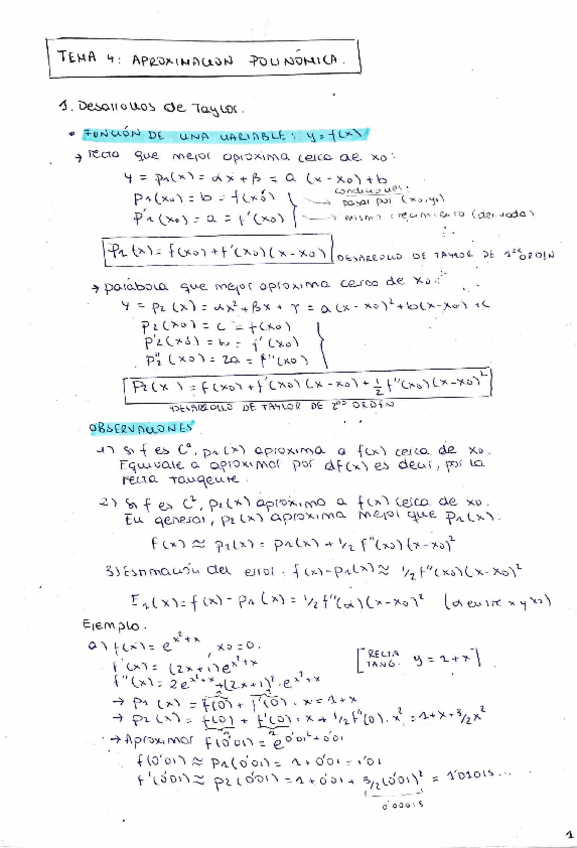 TEMA 4: APROXIMACION POLINÓMICA.
1. Desarrollos de Taylor.
• FUNCIÓN DE UNA VARIABLE: y=f(x)
→ recta que mejor aproxima cerca de x0:
y = p1(x) = αx + β = a (x-x0)+b
p1(x0) = b = f(x0)
condiciones:
→ pasar por (x0,y0)
p'1(x0) = a = f'(x0)
→ mismo crecimiento (derivada)
p1(x) = f(x0)+f'(x0)(x-x0)
DESARROLLO DE TAYLOR DE 1er ORDEN
→ parábola que mejor aproxima cerca de x0:
y = p2(x) = αx²+βx+γ = a(x-x0)²+b(x-x0)+c
p2(x0) = c = f(x0)
p'2(x0) = b = f'(x0)
p''2(x0) = 2a = f''(x0)
P2(x) = f(x0)+f'(x0)(x-x0)+1/2 f''(x0)(x-x0)²
DESARROLLO DE TAYLOR DE 2do ORDEN
OBSERVACIONES
1) Si f es C¹, p1(x) aproxima a f(x) cerca de x0.
Equivale a aproximar por df(x) es decir, por la
recta tangente.
2) Si f es C², p2(x) aproxima a f(x) cerca de x0.
En general, p2(x) aproxima mejor que p1(x).
f(x) ≈ p2(x) = p1(x) + 1/2 f''(x0)(x-x0)²
3) Estimación del error: f(x)-p1(x) ≈ 1/2 f''(x0)(x-x0)²
E1(x) = f(x) - p1(x) = 1/2 f''(α)(x-x0)² (α entre x y x0)
Ejemplo.
a) f(x) = e^(x²+x), x0=0.
f'(x) = (2x+1)e^(x²+x)
[RECTA TANG. y = 1+x]
f''(x) = 2e^(x²+x)+(2x+1)²·e^(x²+x)
→ p1(x) = f(0) + f'(0)·x = 1+x
→ p2(x) = f(0) + f'(0)·x + 1/2 f''(0)·x² = 1+x+3/2x²
→ Aproximar f(0'01) = e^(0'01²+0'01)
f(0'01) ≈ p1(0'01) = 1+0'01 = 1'01
f'(0'01) ≈ p2(0'01) = 1+0'01+3/2(0'01)² = 1'01015...
0'00015
1